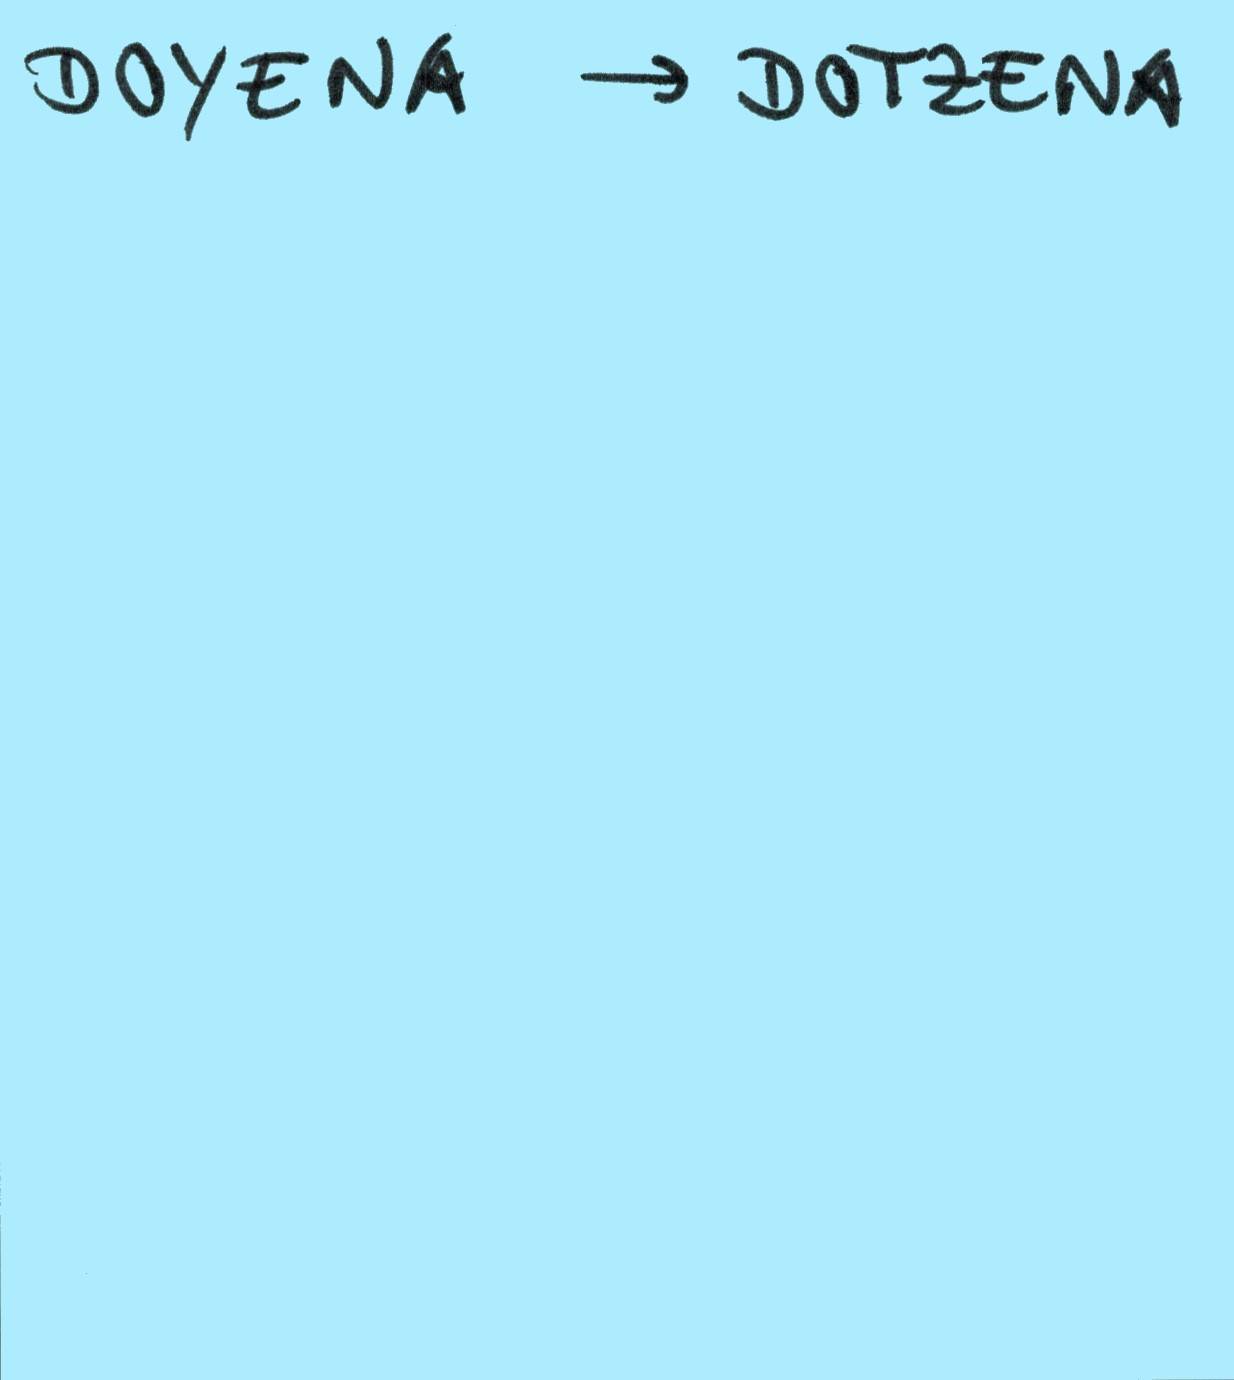 DOYENA → DOTZENA